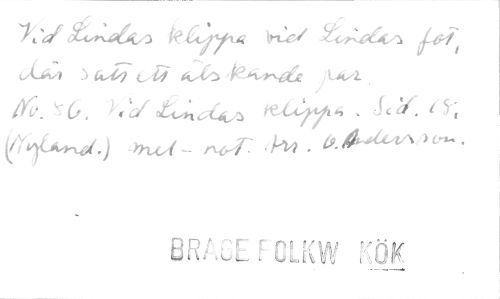 Vid Lindas klippa vid Lindas fot,
där satt ett älskande par.
No. 86. Vid Lindas klippa. Sid. 18.
(Nyland.) mel-not. Arr. O. Andersson.
BRAGE FOLKW KÖK